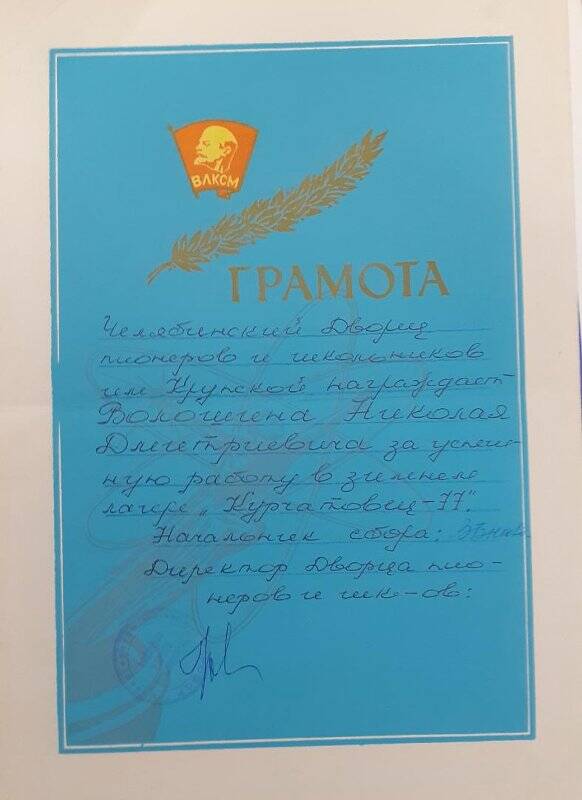 ВЛКСМ
ГРАМОТА
Челябинский Дворец
пионеров и школьников
им Крупской награждает
Волошина Николая
Дмитриевича за успеш-
ную работу в зимнем
лагере „Курчатовец-77".
Начальник сбора:
Директор Дворца пио-
неров и шк-ов: